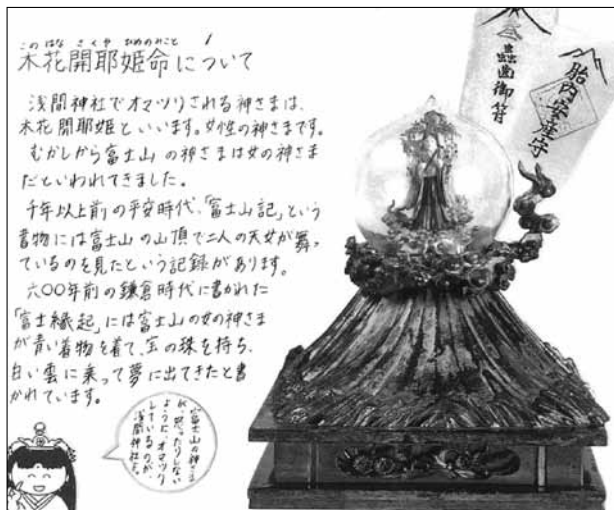 このはなさくやひめのみこと
木花開耶姫命について
浅間神社でオマツリされる神さまは、
木花開耶姫といいます。女性の神さまです。
むかしから富士山の神さまは女の神さま
だといわれてきました。
千年以上前の平安時代、「富士山記」という
書物には富士山の山頂で二人の天女が舞っ
ているのを見たという記録があります。
六〇〇年前の鎌倉時代に書かれた
「富士縁起」には富士山の女の神さま
が青い着物を着て、宝の珠を持ち、
白い雲に乗って夢に出てきたと書
かれています。
富士山の神さま
が、怒ったりしない
ように、オマツリ
しているのが、
浅間神社よ。
蟲歯御符
胎内安産守